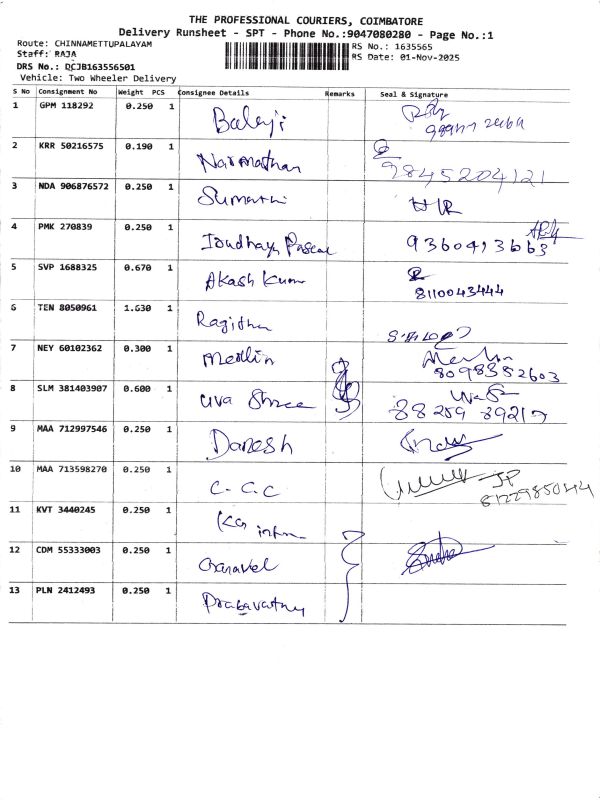 THE PROFESSIONAL COURIERS, COIMBATORE
Delivery Runsheet - SPT - Phone No.:9047080280 - Page No.:1
Route: CHINNAMETTUPALAYAM RS No.: 1635565
Staff: RAJA RS Date: 01-Nov-2025
DRS No.: DCJB163556501
Vehicle: Two Wheeler Delivery
S No Consignment No Weight PCS Consignee Details Remarks Seal & Signature
1 GPM 118292 0.250 1 Balaji
2 KRR 50216575 0.190 1 Narmathan 9845204121
3 NDA 906876572 0.250 1 Sumathi
4 PMK 270839 0.250 1 Pascal 9360413663
5 SVP 1688325 0.670 1 Akash Kumar 8110043444
6 TEN 8050961 1.630 1 Ragitha
7 NEY 60102362 0.300 1 Merlin Merlin
8098352603
8 SLM 381403907 0.600 1 Uva Shree
88259 89217
9 MAA 712997546 0.250 1 Danesh
10 MAA 713598270 0.250 1 C. C. C JP
8122985044
11 KVT 3440245 0.250 1
12 CDM 55333003 0.250 1
13 PLN 2412493 0.250 1 Prabavathy